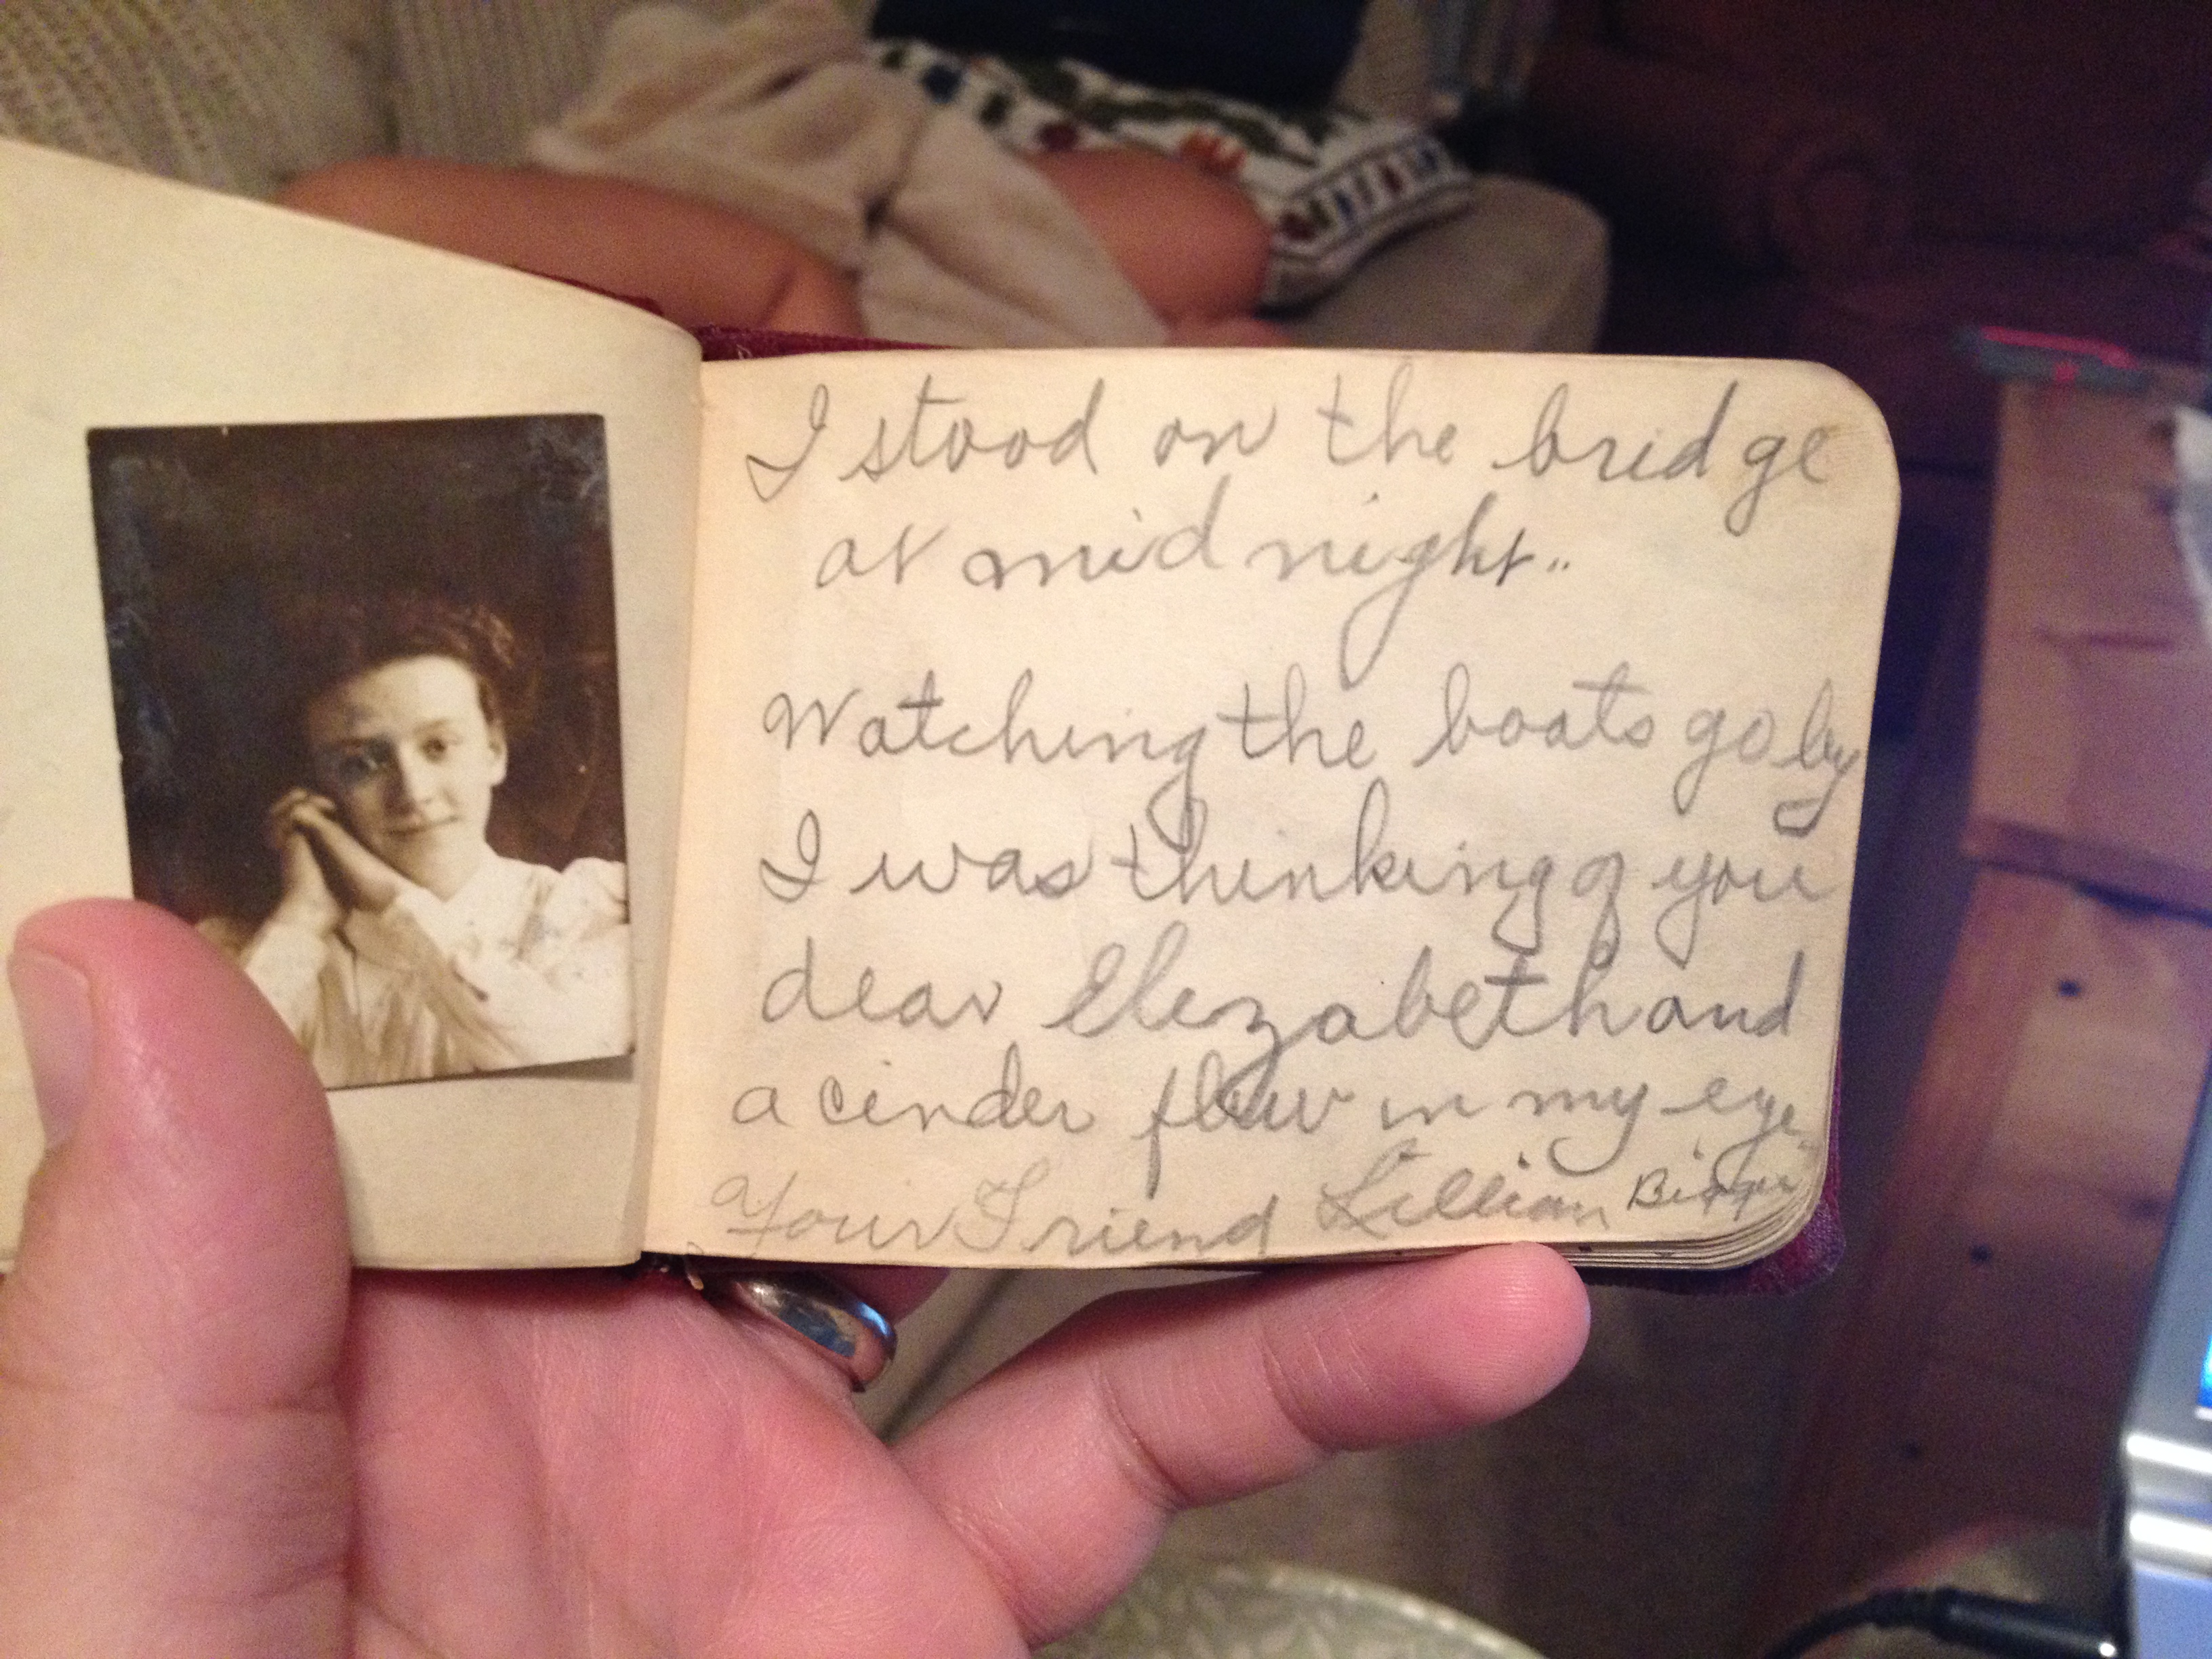 I stood on the bridge
at mid night..
Watching the boats go by
I was thinking of you
dear Elezabeth and
a cinder flew in my eye
Your Friend Lillian